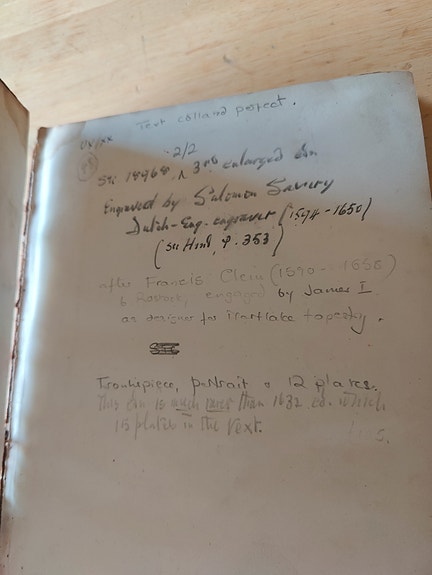 Text coll and perfect.
2/2
3rd enlarged edn
Engraved by Salomon Savery
Dutch-Eng. engraver (1594-1650)
(see Hind, p. 353)
after Francis Clein (1590-1658)
b Rostock, engaged by James I
as designer for Mortlake tapestry.
Frontispiece, portrait & 12 plates.
This edn is much rarer than 1632 ed. which
is plates in the text.